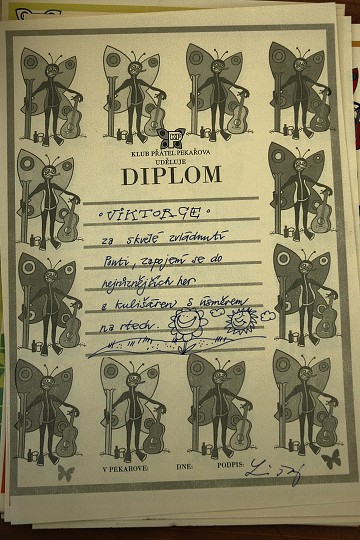 KPP
KLUB PŘÁTEL PEKAŘOVA
UDĚLUJE
DIPLOM
VIKTORCE
za skvělé zvládnutí
Poutí, zapojení se do
nejrůznějších her
a kulišáren s úsměvem
na rtech.
V PEKAROVE: DNE: PODPIS: